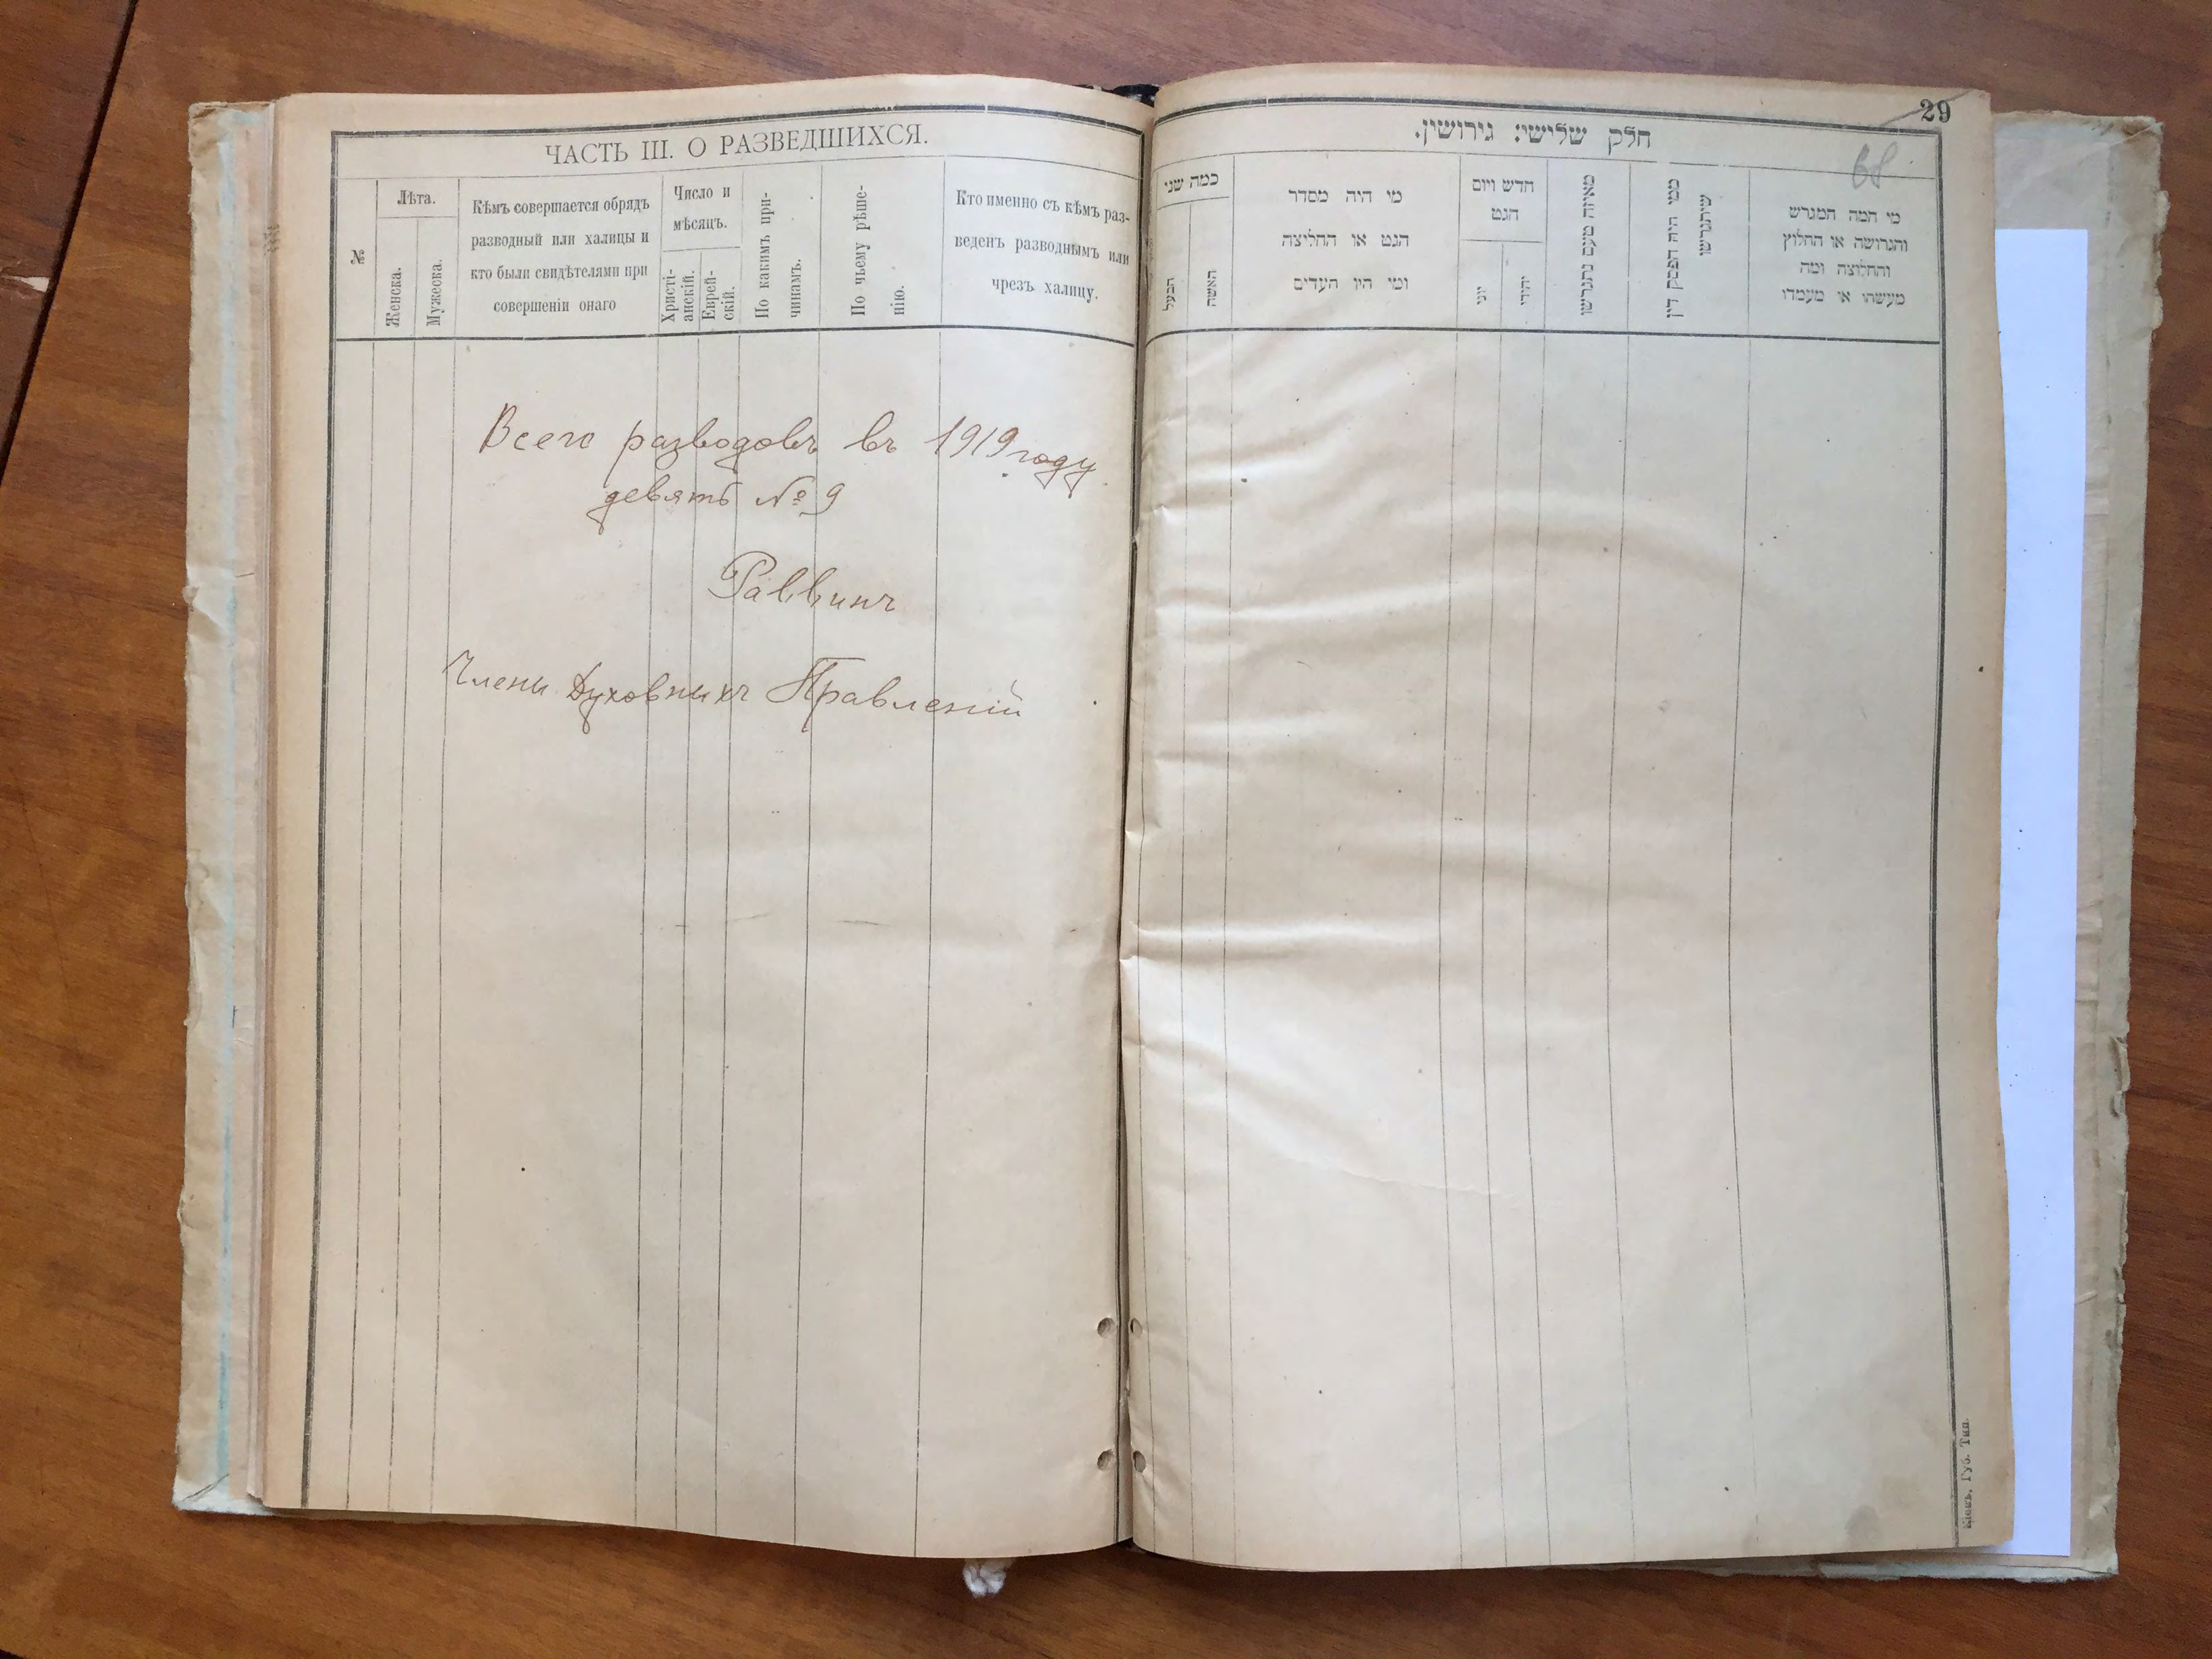 ЧАСТЬ III. О РАЗВЕДШИХСЯ.
№
Лѣта.
Женска.
Мужеска.
Кѣмъ совершается обрядъ
разводный или халицы и
кто были свидѣтелями при
совершеніи онаго
Число и
мѣсяцъ.
Христі-
анскій.
Еврей-
скій.
По какимъ при-
чинамъ.
По чьему рѣше-
нію.
Кто именно съ кѣмъ раз-
веденъ разводнымъ или
чрезъ халицу.
Всего разводовъ въ 1919 году
девять № 9
Раввинъ
Члены Духовныхъ Правленій
29
68
חלק שלישי: גירושין.
כמה שני
הבעל
האשה
מי היה מסדר
הגט או החליצה
ומי היו העדים
חדש ויום
הגט
יוני
יהודי
מאיזה טעם נתגרשו
ממי היה הפסק דין
שיתגרשו
מי המה המגרש
והגרושה או החלוץ
והחלוצה ומה
מעשהו או מעמדו
Кіевъ, Губ. Тип.